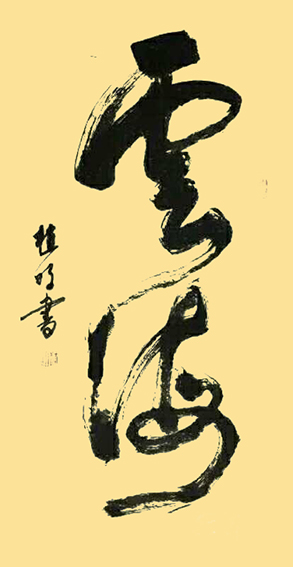 雲海
桂明書